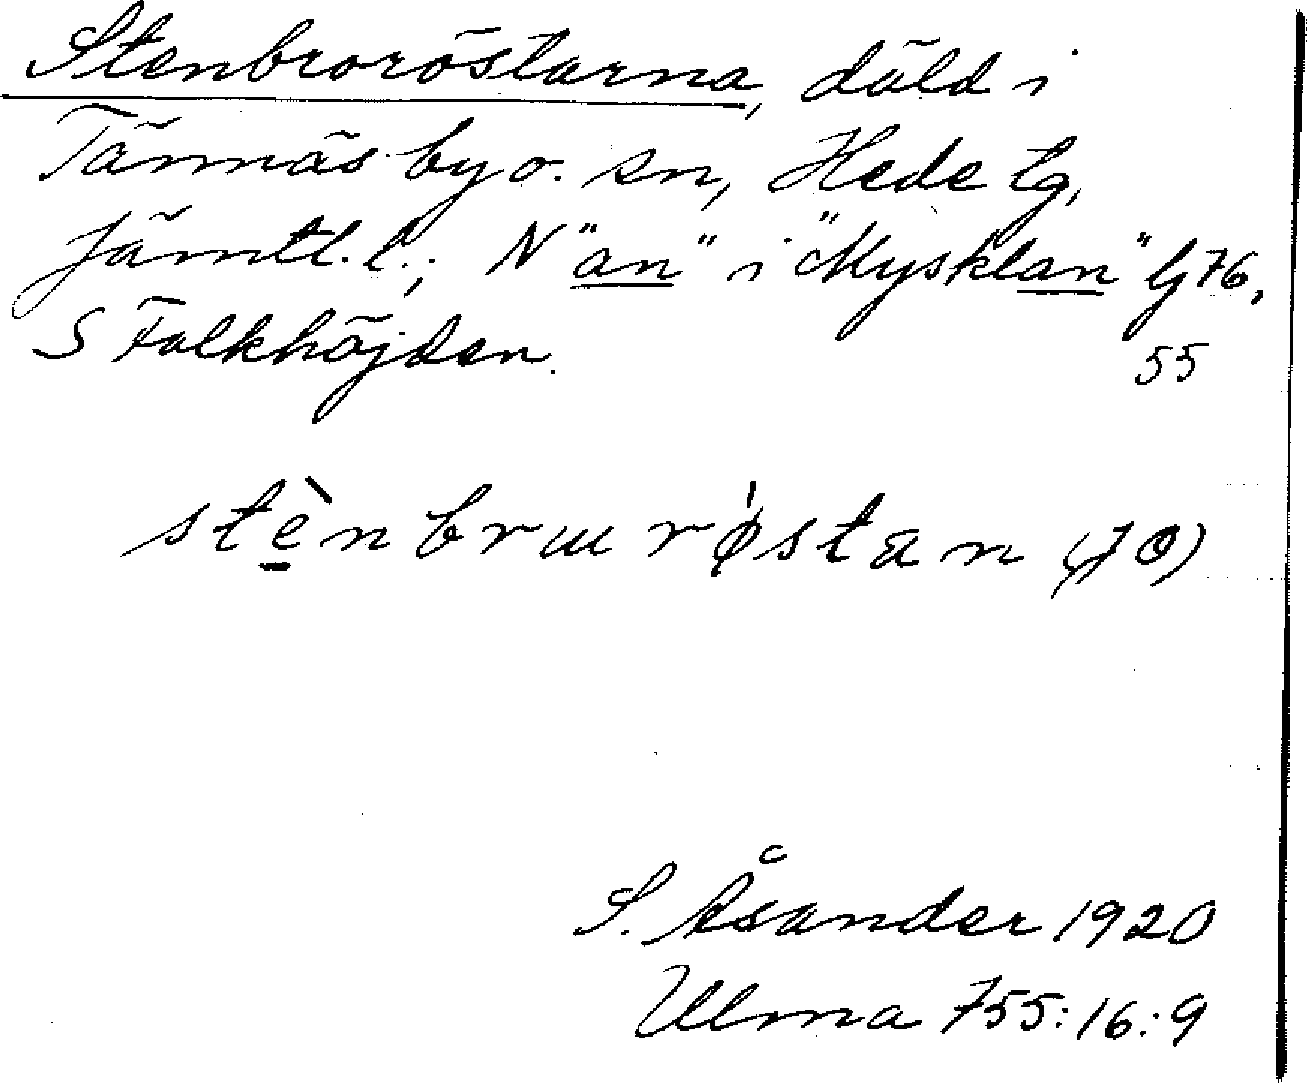 Stenbroröstarna, däld i
Tännäs by o. sn, Hede tg,
Jämtl. l.; N "an" i "Mysklan" G 76,
S Falkhöjden. 55
stènbrɯrǿstan (70)
S. Åsander 1920
Ulma 755:16:9